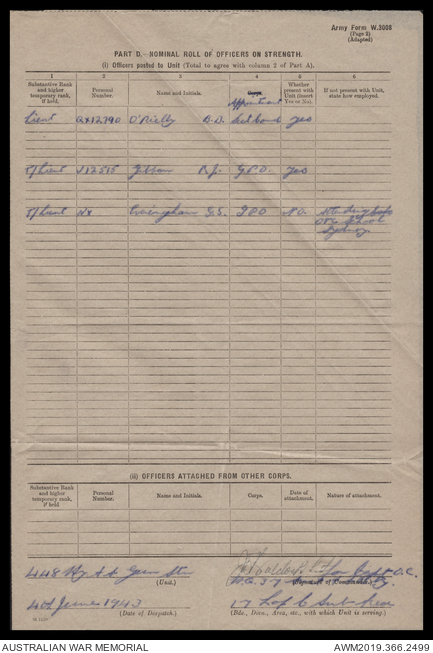 Army Form W.3008
(Page 2)
(Adapted)
PART D.- NOMINAL ROLL OF OFFICERS ON STRENGTH.
(i) Officers posted to Unit (Total to agree with column 2 of Part A).
1 2 3 4 5 6
Substantive Rank and higher temporary rank, if held.
Personal Number.
Name and Initials.
Corps.
Appointment
Whether present with Unit (insert Yes or No).
If not present with Unit, state how employed.
Lieut QX12790 O'Rielly yes
T/Lieut Gibson R.J. G.P.O. yes
T/Lieut NX G.S. GPO No.
School
Sydney
(ii) OFFICERS ATTACHED FROM OTHER CORPS.
Substantive Rank and higher temporary rank, if held
Personal Number.
Name and Initials.
Corps.
Date of attachment.
Nature of attachment.
448 Hy A A Gun Stn
(Unit.)
for O.C.
4th June 1943
(Date of Despatch.)
17 L of C Sub Area
(Bde., Divn., Area, etc., with which Unit is serving.)
AUSTRALIAN WAR MEMORIAL
AWM2019.366.2499